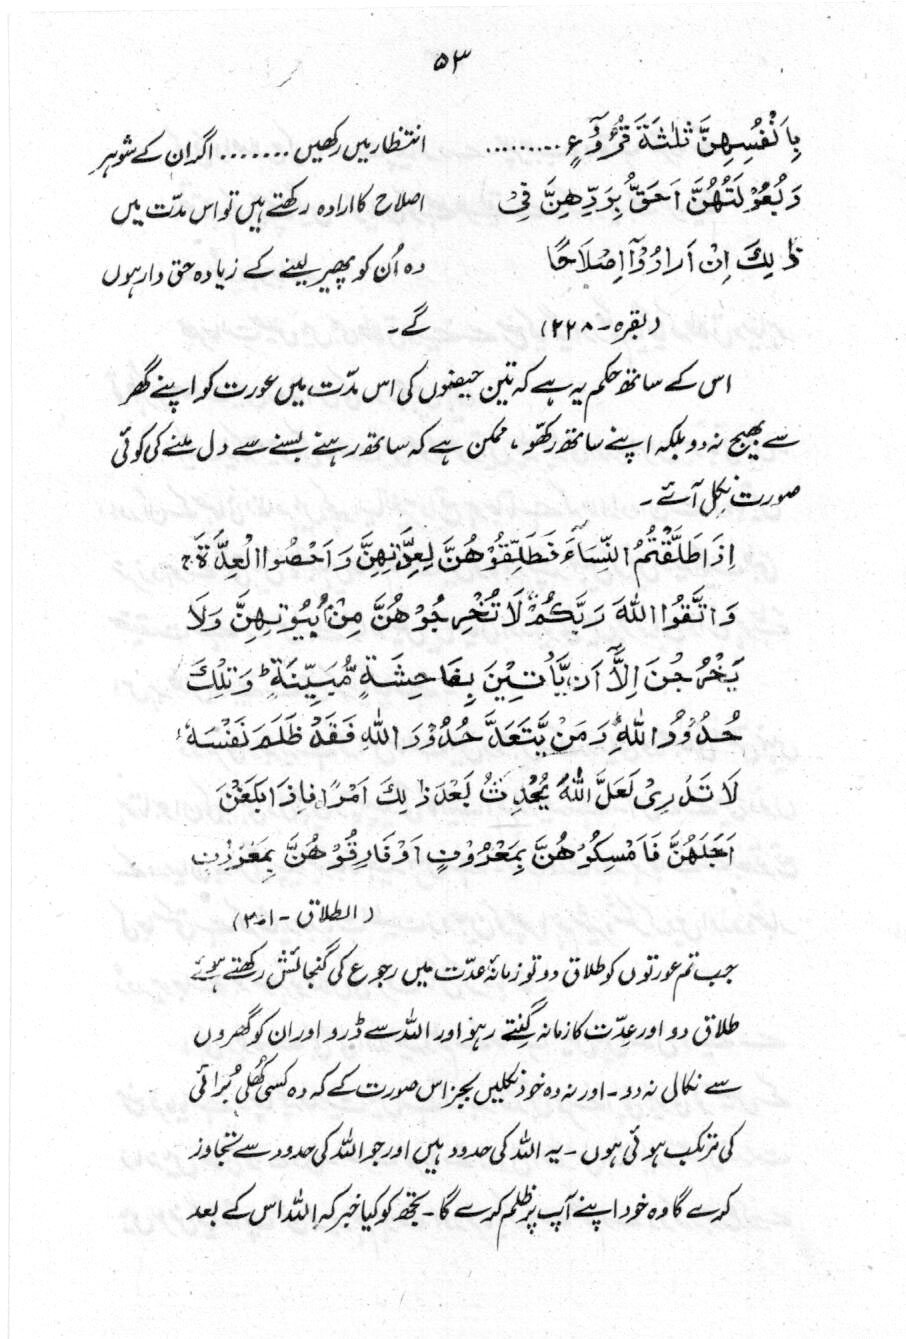 ۵۳
بِاَنْفُسِهِنَّ ثَلٰثَةَ قُرُوْٓءٍ .........
وَبُعُوْلَتُهُنَّ اَحَقُّ بِرَدِّهِنَّ فِيْ
ذٰلِكَ اِنْ اَرَادُوْٓا اِصْلَاحًا
(بقرہ - ۲۲۸)
انتظار میں رکھیں ....... اگر ان کے شوہر
اصلاح کا ارادہ رکھتے ہیں تو اس مدّت میں
وہ اُن کو پھیر لینے کے زیادہ حق دار ہوں
گے۔
اس کے ساتھ حکم یہ ہے کہ تین حیضوں کی اس مدّت میں عورت کو اپنے گھر
سے بھیج نہ دو بلکہ اپنے ساتھ رکھّو، ممکن ہے کہ ساتھ رہنے بسنے سے دل ملنے کی کوئی
صورت نکل آئے۔
اِذَا طَلَّقْتُمُ النِّسَآءَ فَطَلِّقُوْهُنَّ لِعِدَّتِهِنَّ وَاَحْصُوا الْعِدَّةَ ج
وَاتَّقُوا اللّٰهَ رَبَّكُمْ لَا تُخْرِجُوْهُنَّ مِنْۢ بُيُوْتِهِنَّ وَلَا
يَخْرُجْنَ اِلَّآ اَنْ يَّاْتِيْنَ بِفَاحِشَةٍ مُّبَيِّنَةٍ ط وَتِلْكَ
حُدُوْدُ اللّٰهِ وَمَنْ يَّتَعَدَّ حُدُوْدَ اللّٰهِ فَقَدْ ظَلَمَ نَفْسَهٗ
لَا تَدْرِيْ لَعَلَّ اللّٰهَ يُحْدِثُ بَعْدَ ذٰلِكَ اَمْرًا فَاِذَا بَلَغْنَ
اَجَلَهُنَّ فَاَمْسِكُوْهُنَّ بِمَعْرُوْفٍ اَوْ فَارِقُوْهُنَّ بِمَعْرُوْفٍ
(الطلاق - ۱-۲)
جب تم عورتوں کو طلاق دو تو زمانۂ عدّت میں رجوع کی گنجائش رکھتے ہوئے
طلاق دو اور عِدّت کا زمانہ گِنتے رہو اور اللہ سے ڈرو اور ان کو گھروں
سے نکالی نہ دو۔ اور نہ وہ خود نکلیں بجز اس صورت کے کہ وہ کسی کُھلی بُرائی
کی مرتکب ہوئی ہوں۔ یہ اللہ کی حدود ہیں اور جو اللہ کی حدود سے تجاوز
کرے گا وہ خود اپنے آپ پر ظلم کرے گا۔ تجھ کو کیا خبر کہ اللہ اس کے بعد